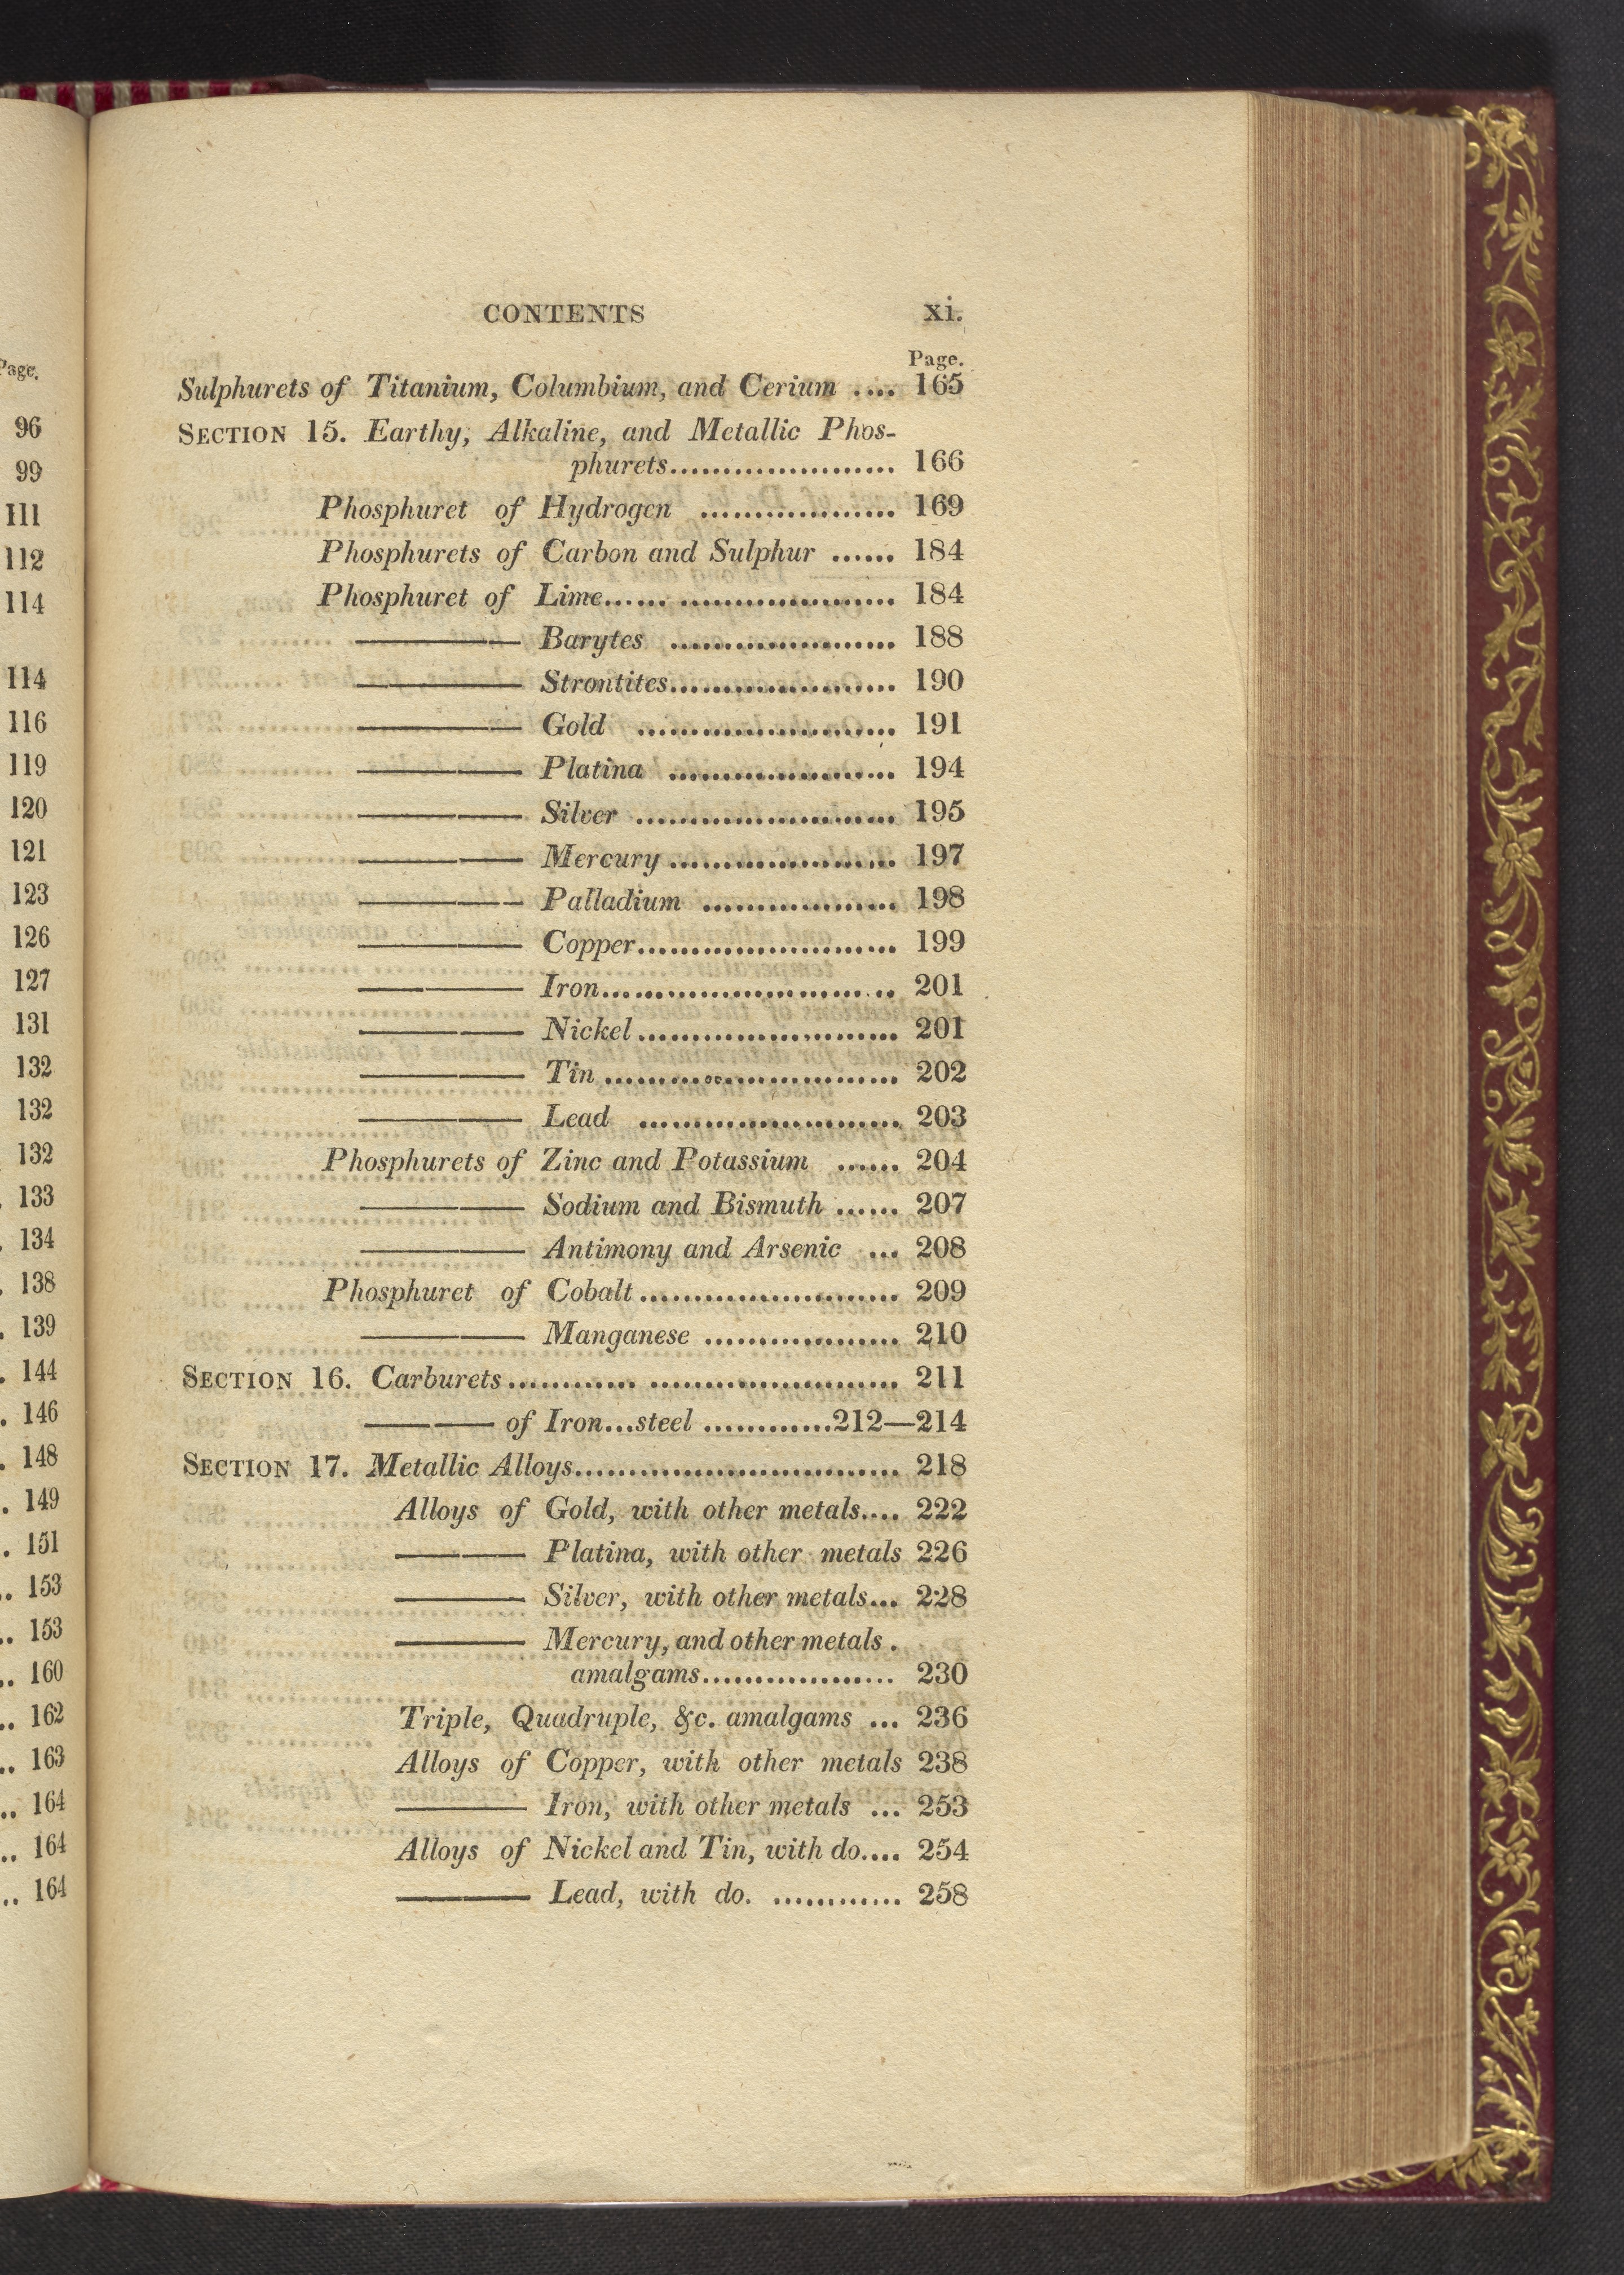 Page.
96
99
111
112
114
114
116
119
120
121
123
126
127
131
132
132
132
133
. 134
. 138
. 139
. 144
. 146
. 148
. 149
. 151
.. 153
.. 153
.. 160
.. 162
.. 163
.. 164
.. 164
.. 164
CONTENTS xi.
Page.
Sulphurets of Titanium, Columbium, and Cerium .... 165
SECTION 15. Earthy, Alkaline, and Metallic Phos-
phurets..................... 166
Phosphuret of Hydrogen .................. 169
Phosphurets of Carbon and Sulphur ...... 184
Phosphuret of Lime...... .................... 184
——— Barytes ..................... 188
——— Strontites..................... 190
——— Gold ........................ 191
——— Platina ..................... 194
——— Silver ........................ 195
——— Mercury ..................... 197
——— Palladium .................. 198
——— Copper........................ 199
——— Iron........................... 201
——— Nickel........................ 201
——— Tin ........................... 202
——— Lead ........................ 203
Phosphurets of Zinc and Potassium ...... 204
——— Sodium and Bismuth ...... 207
——— Antimony and Arsenic ... 208
Phosphuret of Cobalt........................ 209
——— Manganese .................. 210
SECTION 16. Carburets............ ....................... 211
——— of Iron...steel ............212—214
SECTION 17. Metallic Alloys.............................. 218
Alloys of Gold, with other metals.... 222
——— Platina, with other metals 226
——— Silver, with other metals... 228
——— Mercury, and other metals .
amalgams.................. 230
Triple, Quadruple, &c. amalgams ... 236
Alloys of Copper, with other metals 238
——— Iron, with other metals ... 253
Alloys of Nickel and Tin, with do.... 254
——— Lead, with do. ............ 258